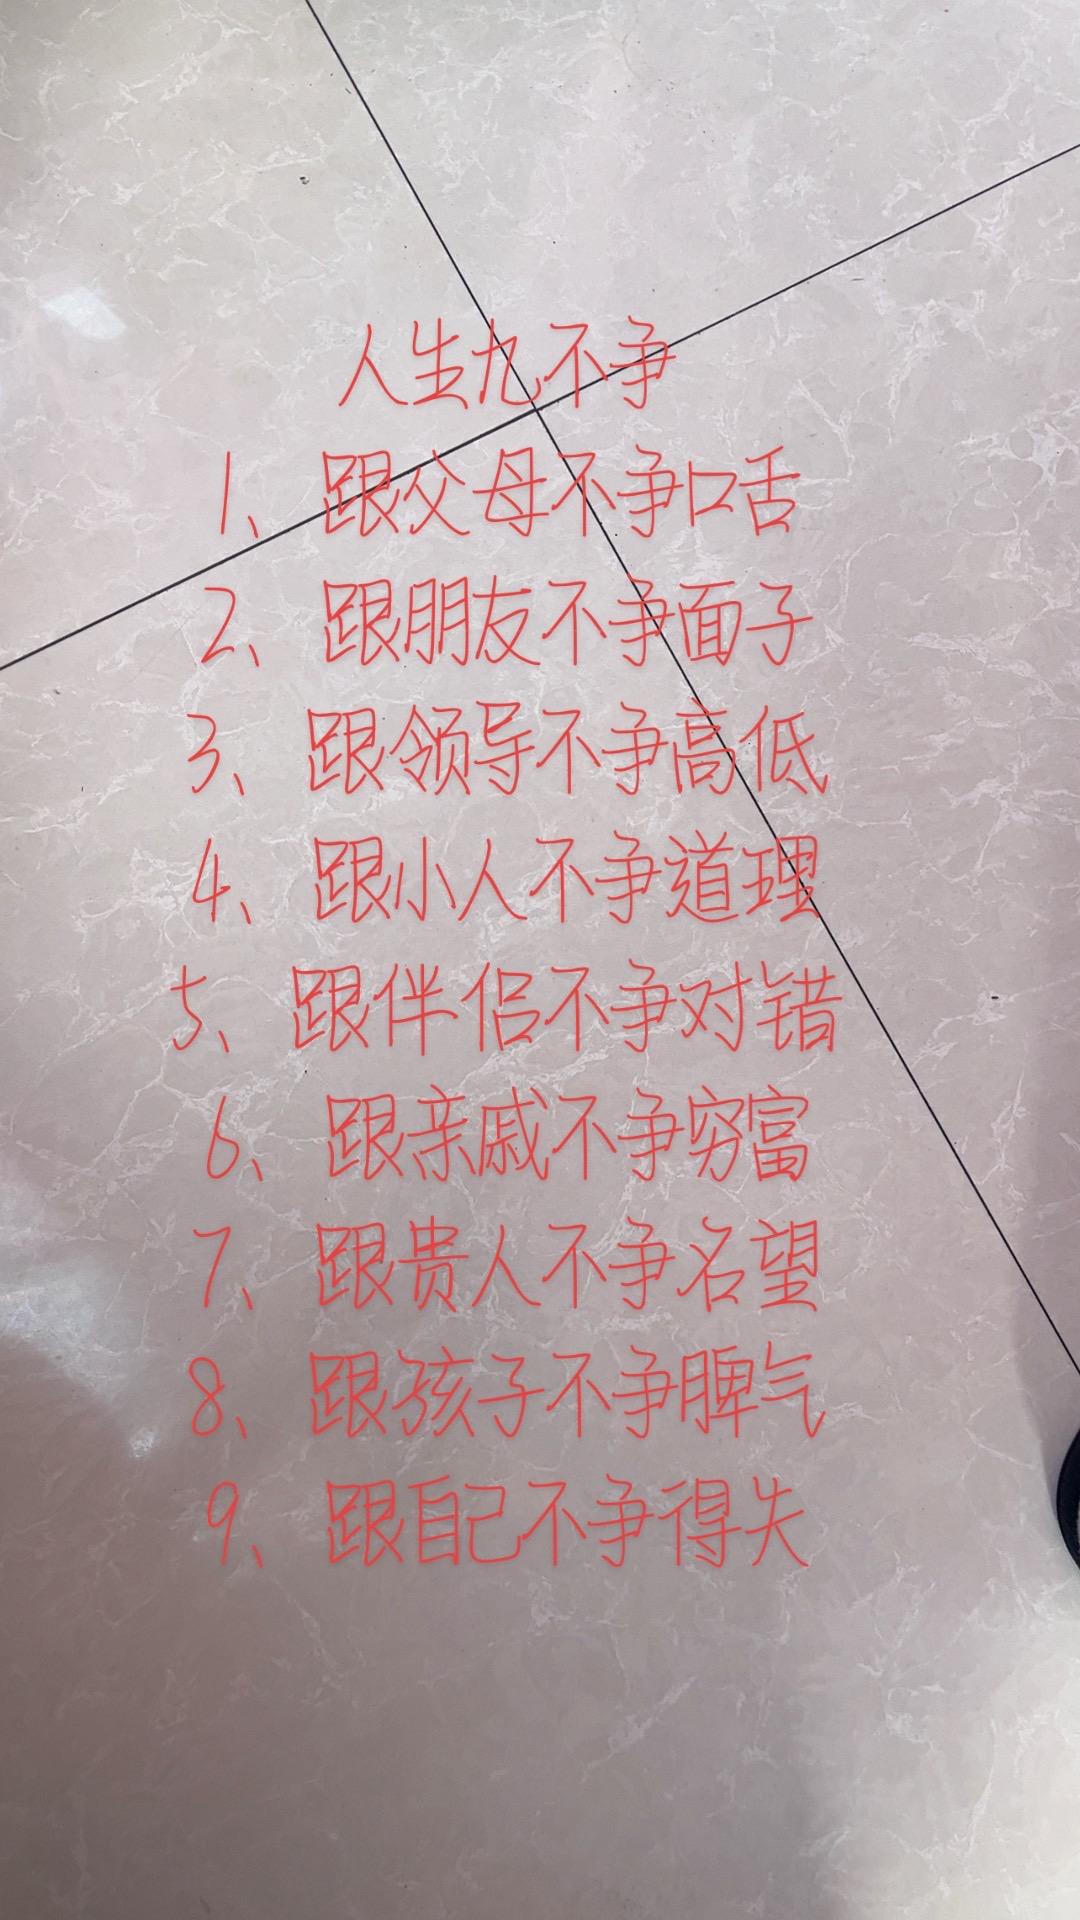 人生九不争
1、跟父母不争口舌
2、跟朋友不争面子
3、跟领导不争高低
4、跟小人不争道理
5、跟伴侣不争对错
6、跟亲戚不争穷富
7、跟贵人不争名望
8、跟孩子不争脾气
9、跟自己不争得失